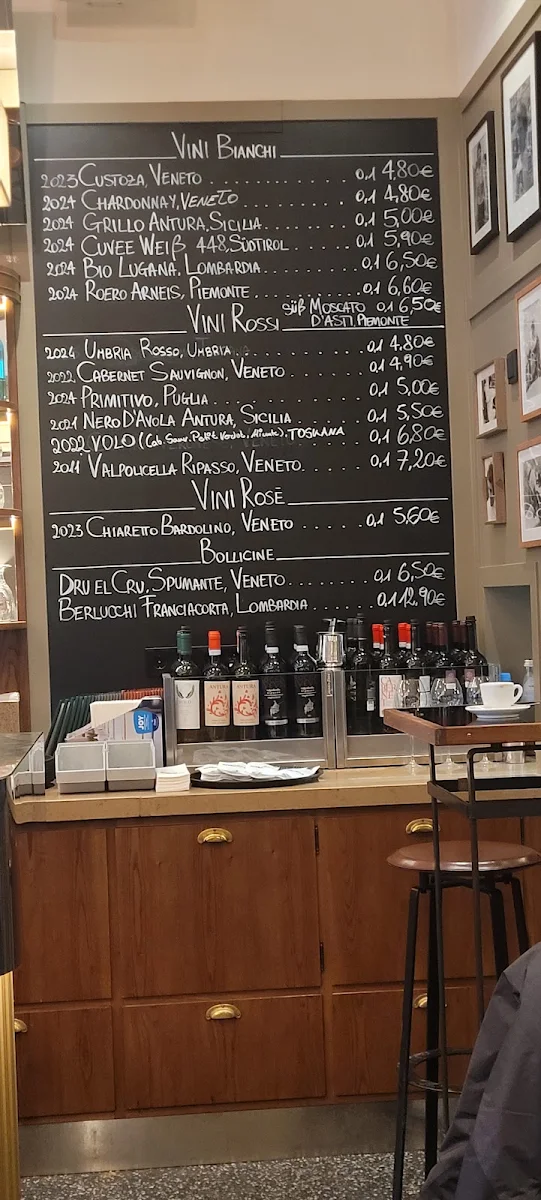 VINI BIANCHI
2023 CUSTOZA, VENETO . . . . . . . . . . . . . . . . 0,1 4,80€
2024 CHARDONNAY, VENETO . . . . . . . . . . . 0,1 4,80€
2024 GRILLO ANTURA, SICILIA . . . . . . . . . 0,1 5,00€
2024 CUVEE WEIß 448, SÜDTIROL . . . . . . 0,1 5,90€
2024 BIO LUGANA, LOMBARDIA . . . . . . . . . 0,1 6,50€
2024 ROERO ARNEIS, PIEMONTE . . . . . . . . . . 0,1 6,60€
süß MOSCATO 0,1 6,50€
D'ASTI, PIEMONTE
VINI ROSSI
2024 UMBRIA ROSSO, UMBRIA . . . . . . . . . . . . 0,1 4,80€
2022 CABERNET SAUVIGNON, VENETO . . . . . . . 0,1 4,90€
2024 PRIMITIVO, PUGLIA . . . . . . . . . . . . . . 0,1 5,00€
2021 NERO D'AVOLA ANTURA, SICILIA . . . . . . 0,1 5,50€
2022 VOLO (Cab. Sauv., Petit Verdot, Alicante), TOSKANA 0,1 6,80€
2011 VALPOLICELLA RIPASSO, VENETO . . . . . . 0,1 7,20€
VINI ROSÉ
2023 CHIARETTO BARDOLINO, VENETO . . . . . . 0,1 5,60€
BOLLICINE
DRU EL CRU, SPUMANTE, VENETO . . . . . . . . 0,1 6,50€
BERLUCCHI FRANCIACORTA, LOMBARDIA . . . . . . 0,1 12,90€
ANTURA
ANTURA
JOY